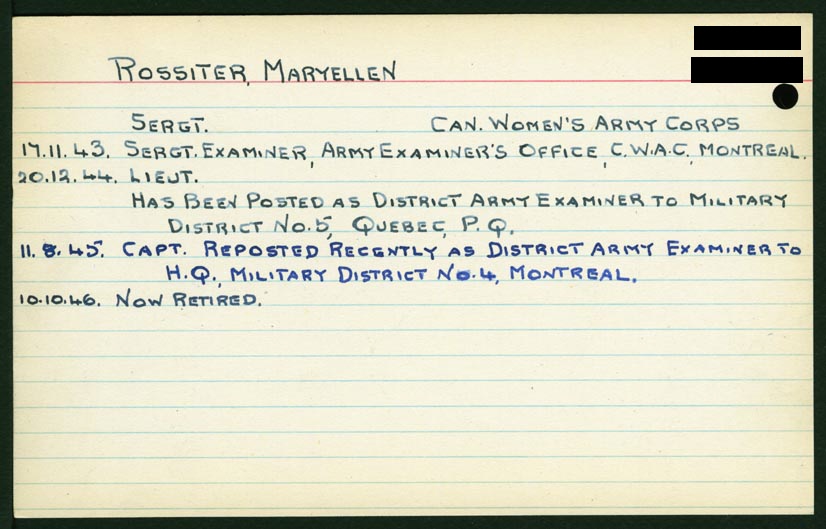 ROSSITER, MARYELLEN
SERGT. CAN. WOMEN'S ARMY CORPS
17.11.43. SERGT. EXAMINER, ARMY EXAMINER'S OFFICE, C.W.A.C, MONTREAL.
20.12.44. LIEUT.
HAS BEEN POSTED AS DISTRICT ARMY EXAMINER TO MILITARY
DISTRICT NO.5, QUEBEC, P.Q.
11.8.45. CAPT. REPOSTED RECENTLY AS DISTRICT ARMY EXAMINER TO
H.Q., MILITARY DISTRICT NO.4, MONTREAL.
10.10.46. NOW RETIRED.